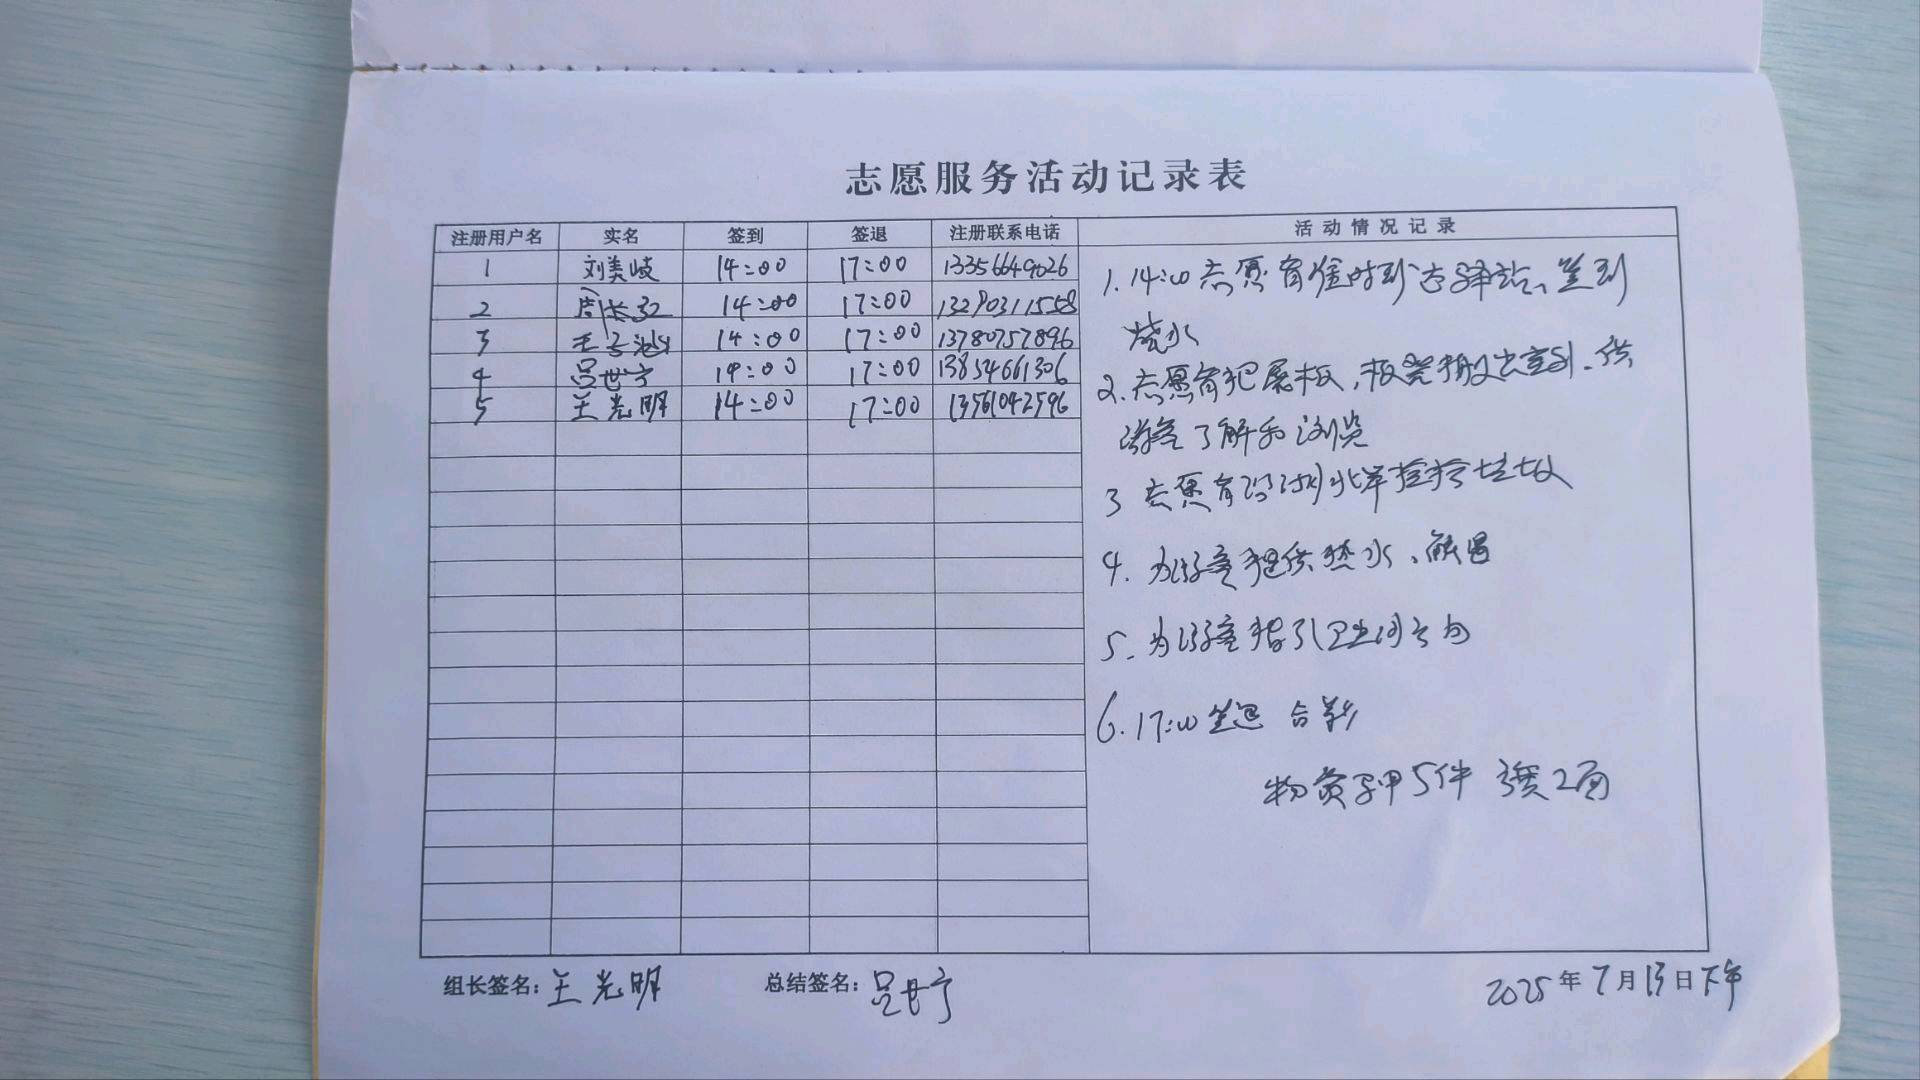 志愿服务活动记录表
注册用户名 实名 签到 签退 注册联系电话 活动情况记录
1 刘美岐 14:00 17:00 13356649026
2 周长江 14:00 17:00 13290311558
3 王 14:00 17:00 13780757896
4 吕世宁 14:00 17:00 13854661306
5 王光明 14:00 17:00 13561042596
1. 14:00 志愿者准时到达驿站、签到
烧水
2. 志愿者把展板、板凳搬出室外、供
游客了解和浏览
3 志愿者 捡拾垃圾
4. 为游客提供热水、解暑
5. 为游客指引卫生间方向
6. 17:00 签退 合影
物资 5件 旗2面
组长签名: 王光明
总结签名: 吕世宁
2025年7月13日下午